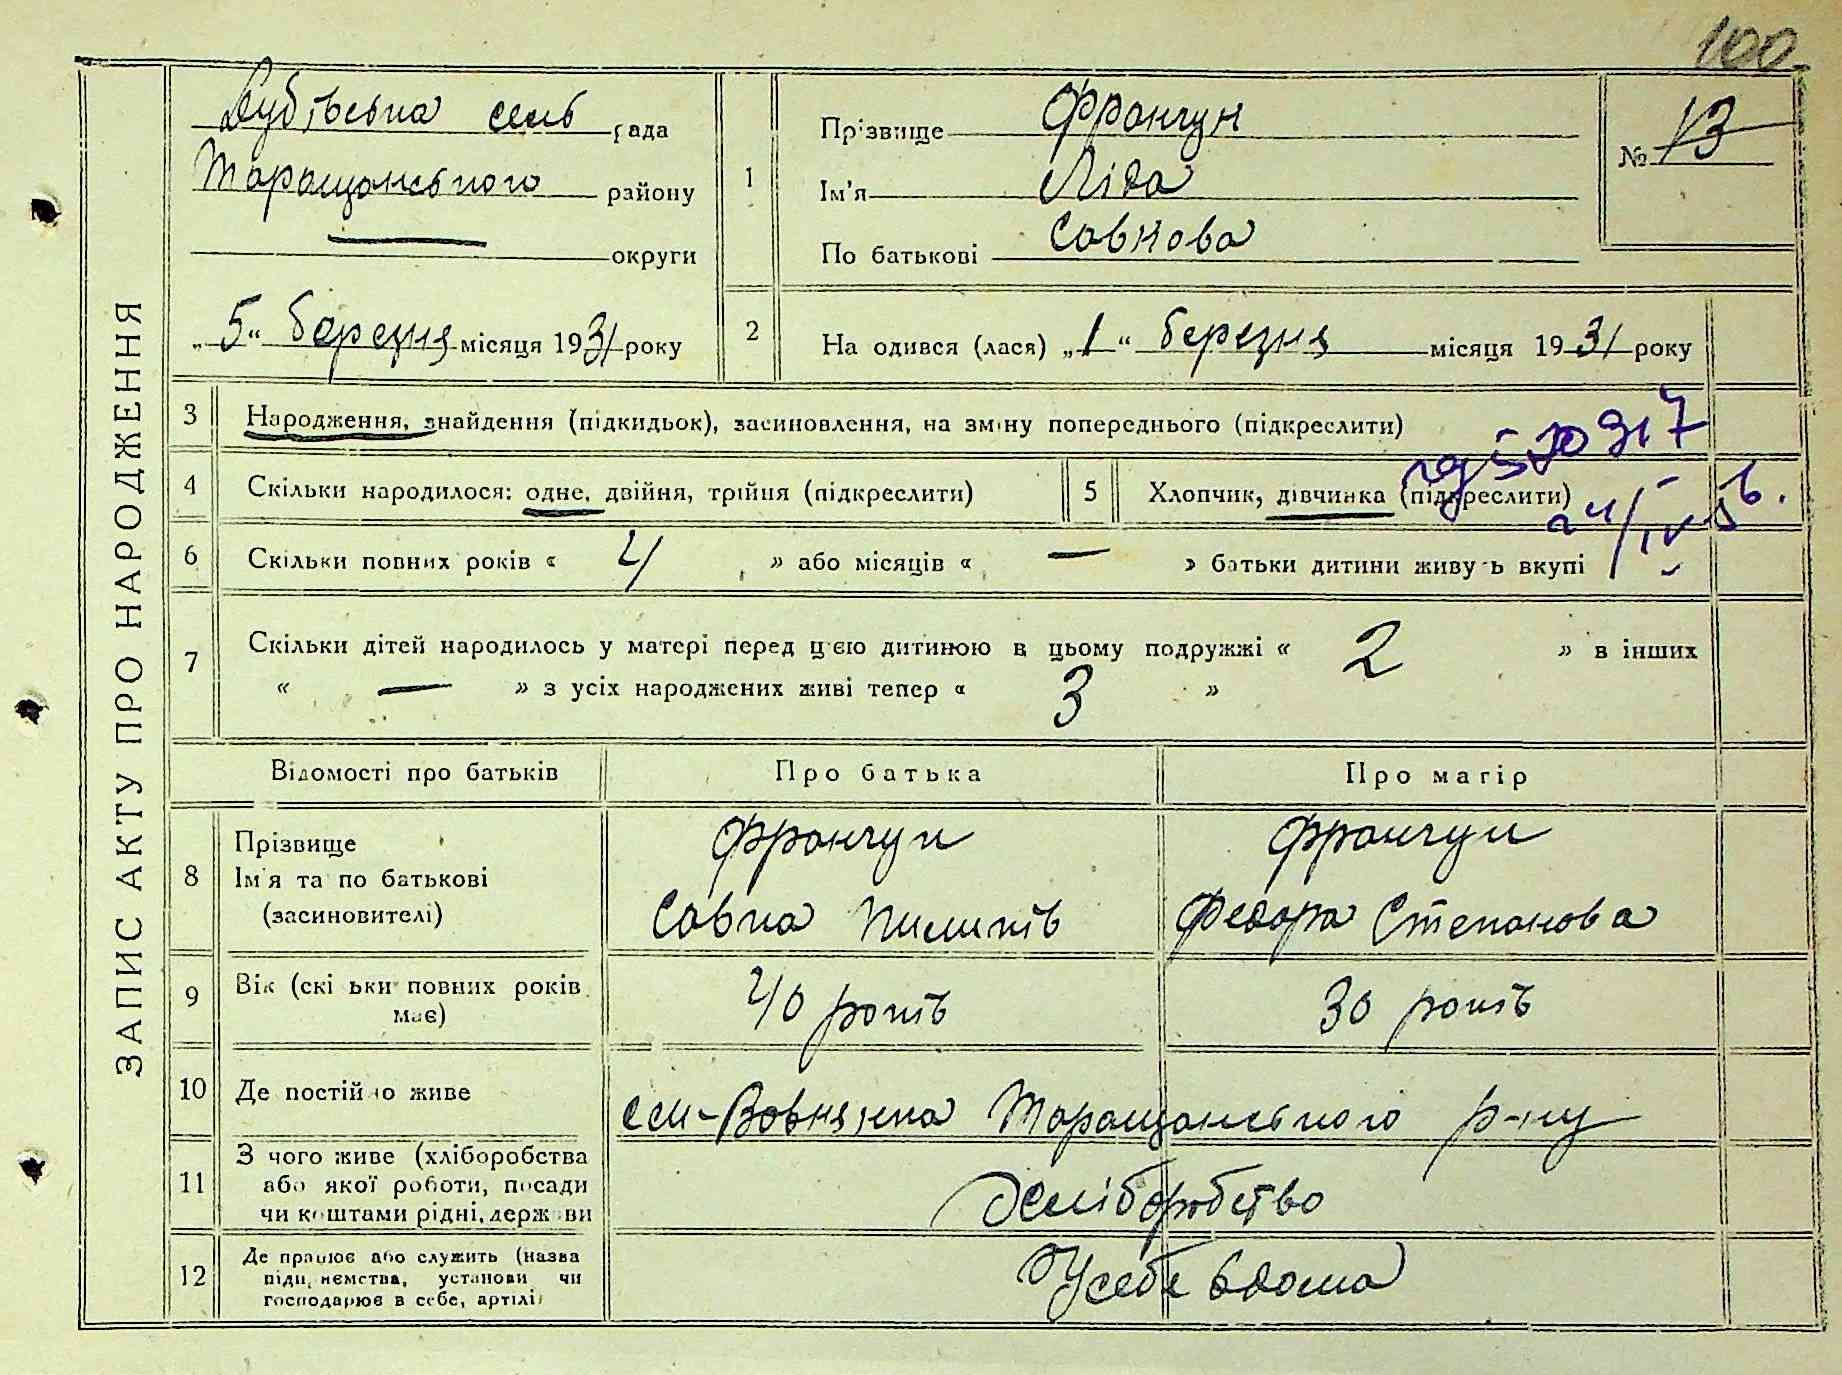 100
ЗАПИС АКТУ ПРО НАРОДЖЕННЯ
Дубівська сель рада
Таращанського району
— округи
„5“ березня місяця 1931 року
1
Прізвище Франчук
Ім'я Ліда
По батькові Савкова
№ 13
2
На одився (лася) „1“ березня місяця 1931 року
3 Народження, знайдення (підкидьок), засиновлення, на зміну попереднього (підкреслити)
4 Скільки народилося: одне, двійня, трійня (підкреслити)
5 Хлопчик, дівчинка (підкреслити)
6 Скільки повних років « 4 » або місяців « — » батьки дитини живуь вкупі
7 Скільки дітей народилось у матері перед цією дитиною в цьому подружжі « 2 » в інших
« — » з усіх народжених живі тепер « 3 »
Відомості про батьків Про батька Про матір
8 Прізвище
Ім'я та по батькові
(засиновителі)
Франчук
Савка Пилипів
Франчук
Федора Степанова
9 Вік (скі ьки повних років
має)
40 років
30 років
10 Де постій о живе
Таращанського р-ну
11 З чого живе (хліборобства
або якої роботи, посади
чи коштами рідні, держ ви
Хліборобство
12 Де працює або служить (назва
підп, иємства, установи чи
господарює в себе, артілі)
У себе вдома